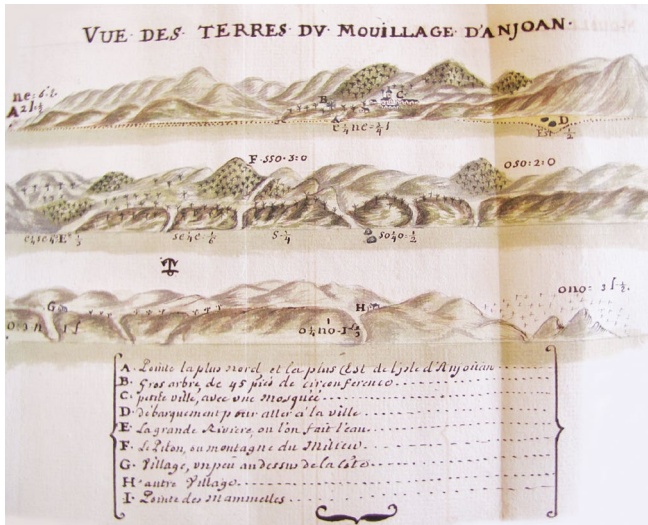 VUE DES TERRES DV MOUILLAGE D'ANJOAN.
ne:
A
B
C
D
Est
F. sso. 3: 0
oso: 2: 0
E
G
H
ono:
A. Pointe la plus nord, et la plus Est de l'isle d'Anjoüan
B. Gros arbre, de 45 piés de circonference
C. petite ville, avec une mosquée
D. débarquement pour aller à la ville
E. La grande Riviere, ou l'on fait l'eau.
F. Le Piton, ou montagne du Milieu
G. Village, un peu au dessus de la côte
H. autre Village.
I. Pointe des Mammelles